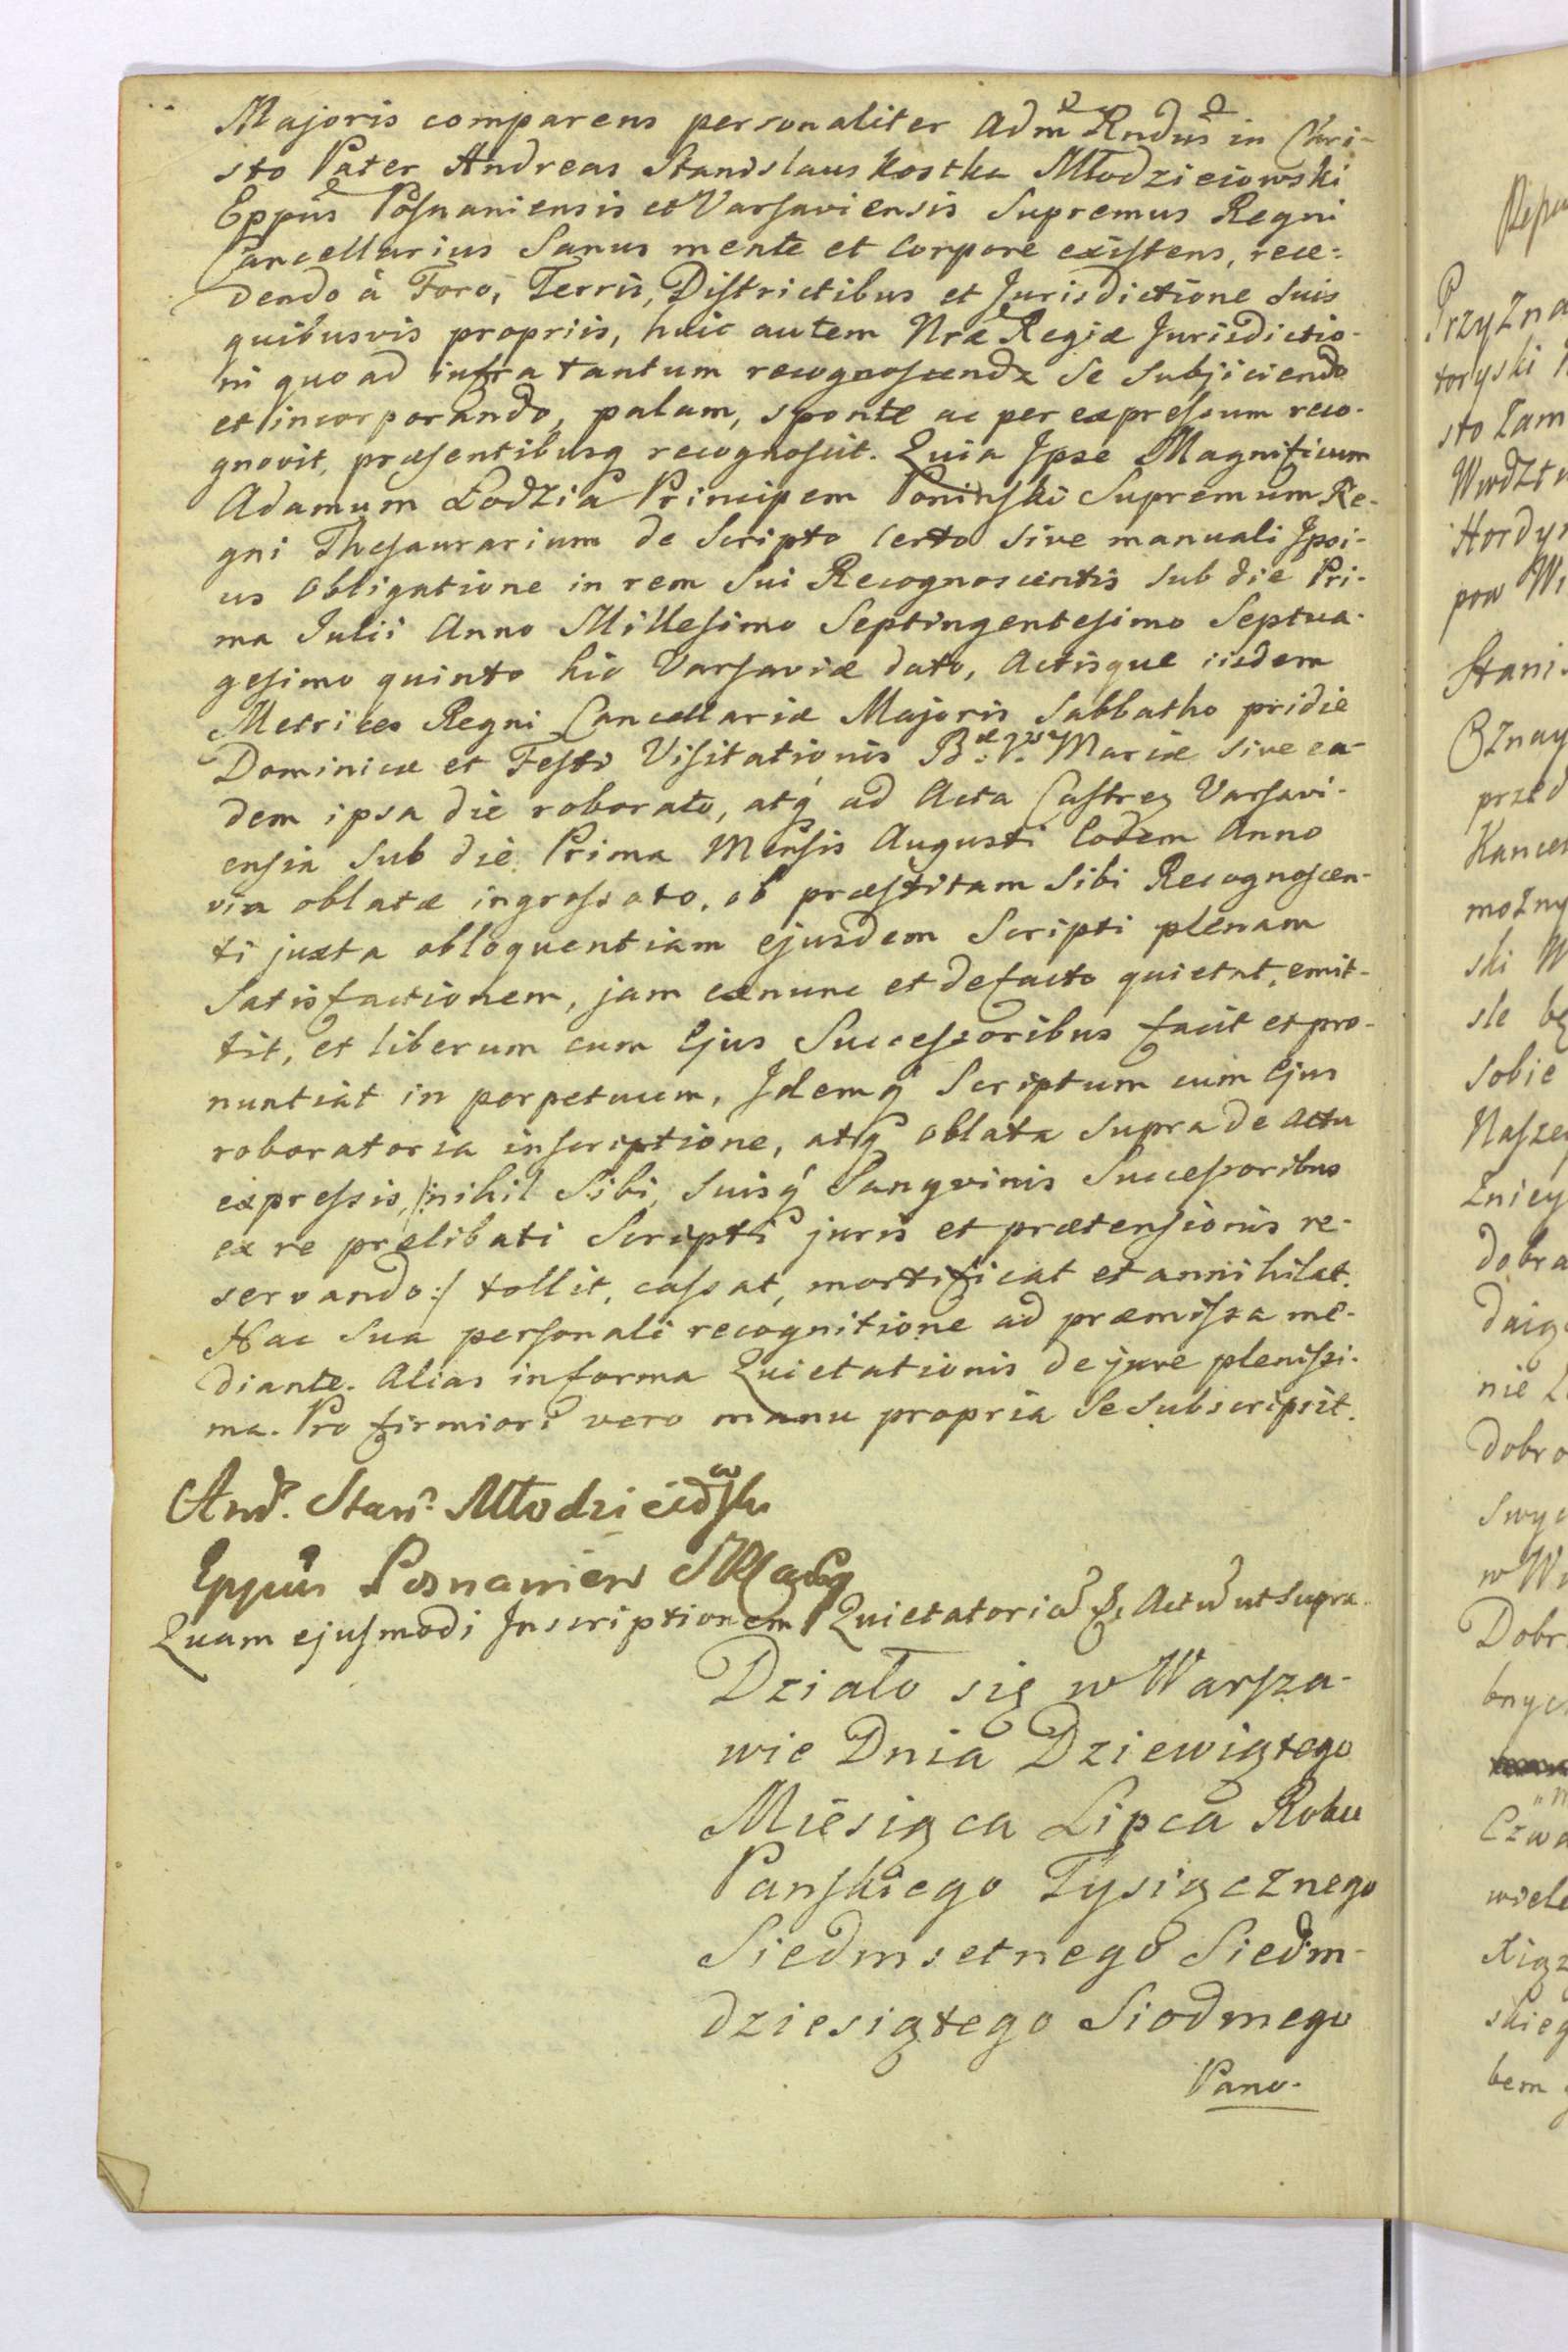 Majoris comparens personaliter Adm Rndus in Chri-
sto Pater Andreas Stanislaus Kostka Młodzieiowski
Eppus Posnaniensis et Varsaviensis Supremus Regni
Cancellarius Sanus mente et Corpore existens, rece-
dendo à Foro, Terris, Districtibus et Jurisdictione Suis
quibusvis propriis, huic autem Nræ Regiæ Jurisdictio-
ni quo ad infra tantum recognoscenda Se Subjiciendo
et incorporando, palam, sponte ac per expressum reco-
gnovit, præsentibusq recognoscit. Quia Ipse Magnificum
Adamum Łodzia Principem Poninski Supremum Re-
gni Thesaurarium de Scripto Certo sive manuali Ipsi-
us Obligatione in rem Sui Recognoscentis sub die Pri-
ma Julii Anno Millesimo Septingentesimo Septua-
gesimo quinto hic Varsaviæ dato, Actisque iisdem
Metrices Regni Cancellariæ Majoris Sabbatho pridie
Dominicæ et Festi Visitationis B: V: Mariæ sive ea-
dem ipsa die roborato, atq ad Acta Castren Varsavi-
ensia sub die Prima Mensis Augusti Eodem Anno
via oblatæ ingrossato, ob præstitam Sibi Recognoscen-
ti juxta obloquentiam ejusdem Scripti plenam
Satisfactionem, jam exnunc et defacto quietat, emit-
tit, et liberum cum Ejus Successoribus facit et pro-
nuntiat in perpetuum, Idemq Scriptum cum Ejus
roboratoria inscriptione, atq oblata supra de actu
expressis, /:nihil Sibi, Suisq Sangvinis Successoribus
ex re prælibati Scripti juris et prætensionis re-
servando:/ tollit, cassat, mortificat et annihilat.
Hac Sua personali recognitione ad præmissa me-
diante. Alias in forma Quietationis de jure plenissi-
ma. Pro firmiori vero manu propria Se Subscripsit.
And. Stan. Młodzieiowski
Eppus Posnanien
Quam ejusmodi Inscriptionem Quietatoria Actu ut Supra.
Działo się w Warsza-
wie Dnia Dziewiątego
Miesiąca Lipca Roku
Panskiego Tysiącznego
Siedmsetnego Siedm-
dziesiątego Siodmego
Pano-